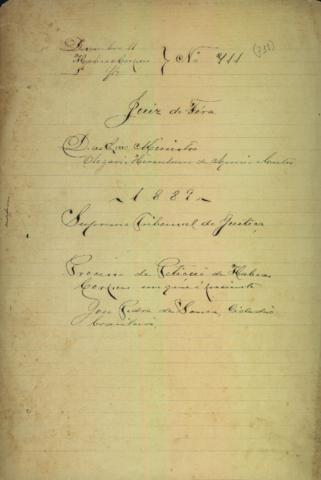 Dezembro 11
Habeas Corpus } No 711 (711)
Juiz de Fóra
Ministro
Olegario Herculano de Aquino e Castro
1889
Supremo Tribunal de Justiça
Processo de Petição de Habeas
Corpus em que é paciente
José Pedro de Souza, Cidadão
brasileiro.